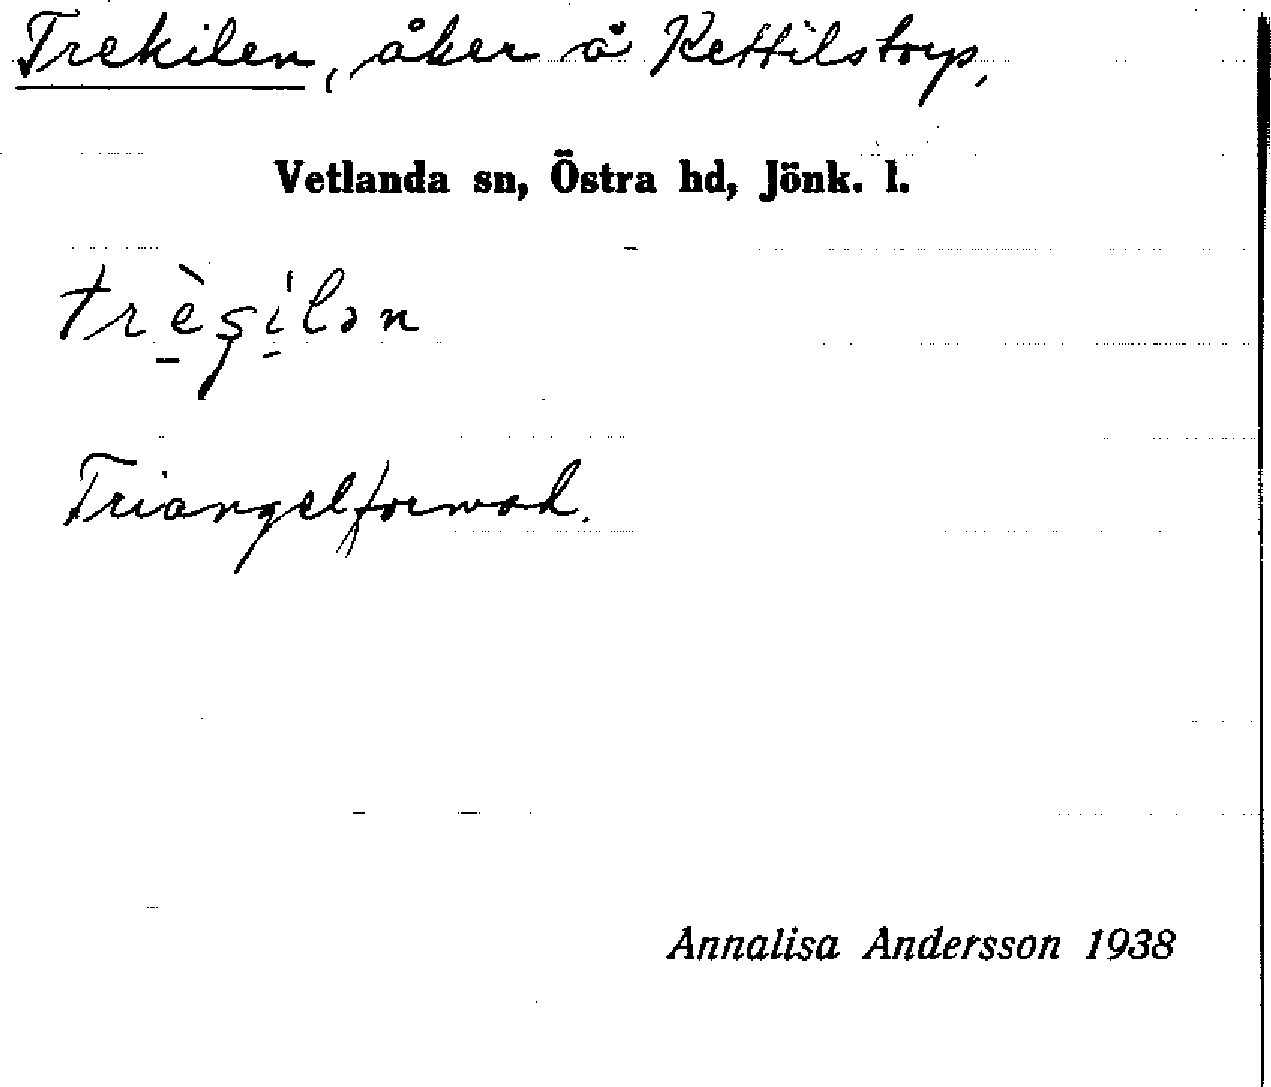 Trekilen, åker å Kettilstorp,
Vetlanda sn, Östra hd, Jönk. l.
Triangelformad.
Annalisa Andersson 1938